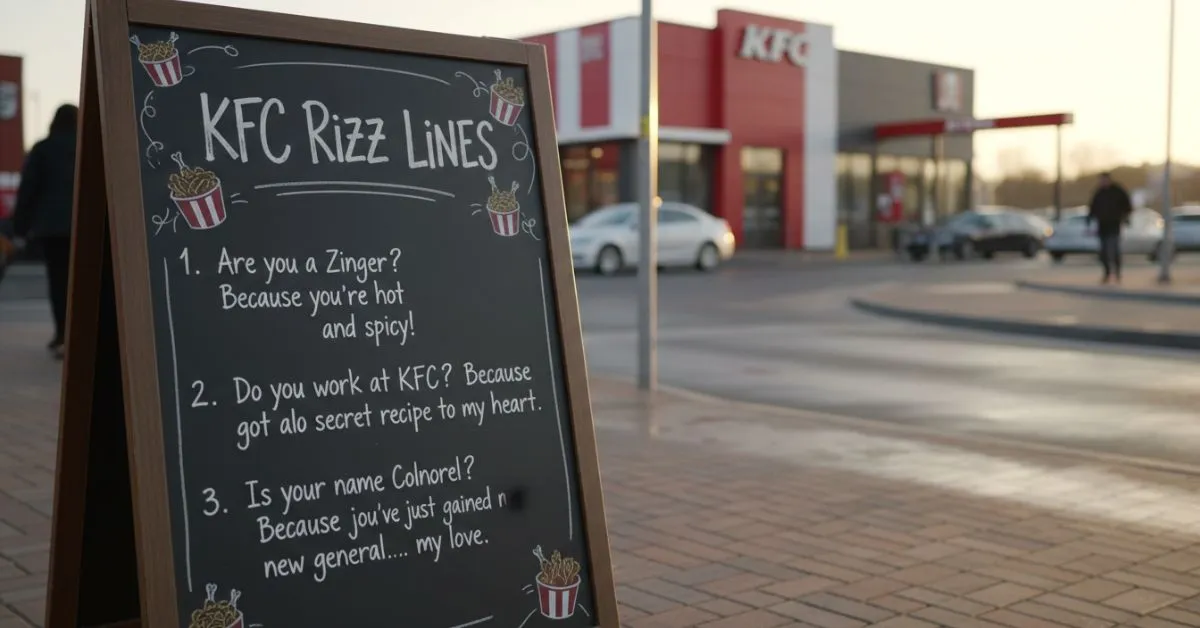 KFC
KFC Rizz LiNES
1. Are you a Zinger?
Because you're hot
and spicy!
2. Do you work at KFC? Because
got alo secret recipe to my heart.
3. Is your name Colnorel?
Because jou've just gained n
new general.... my love.